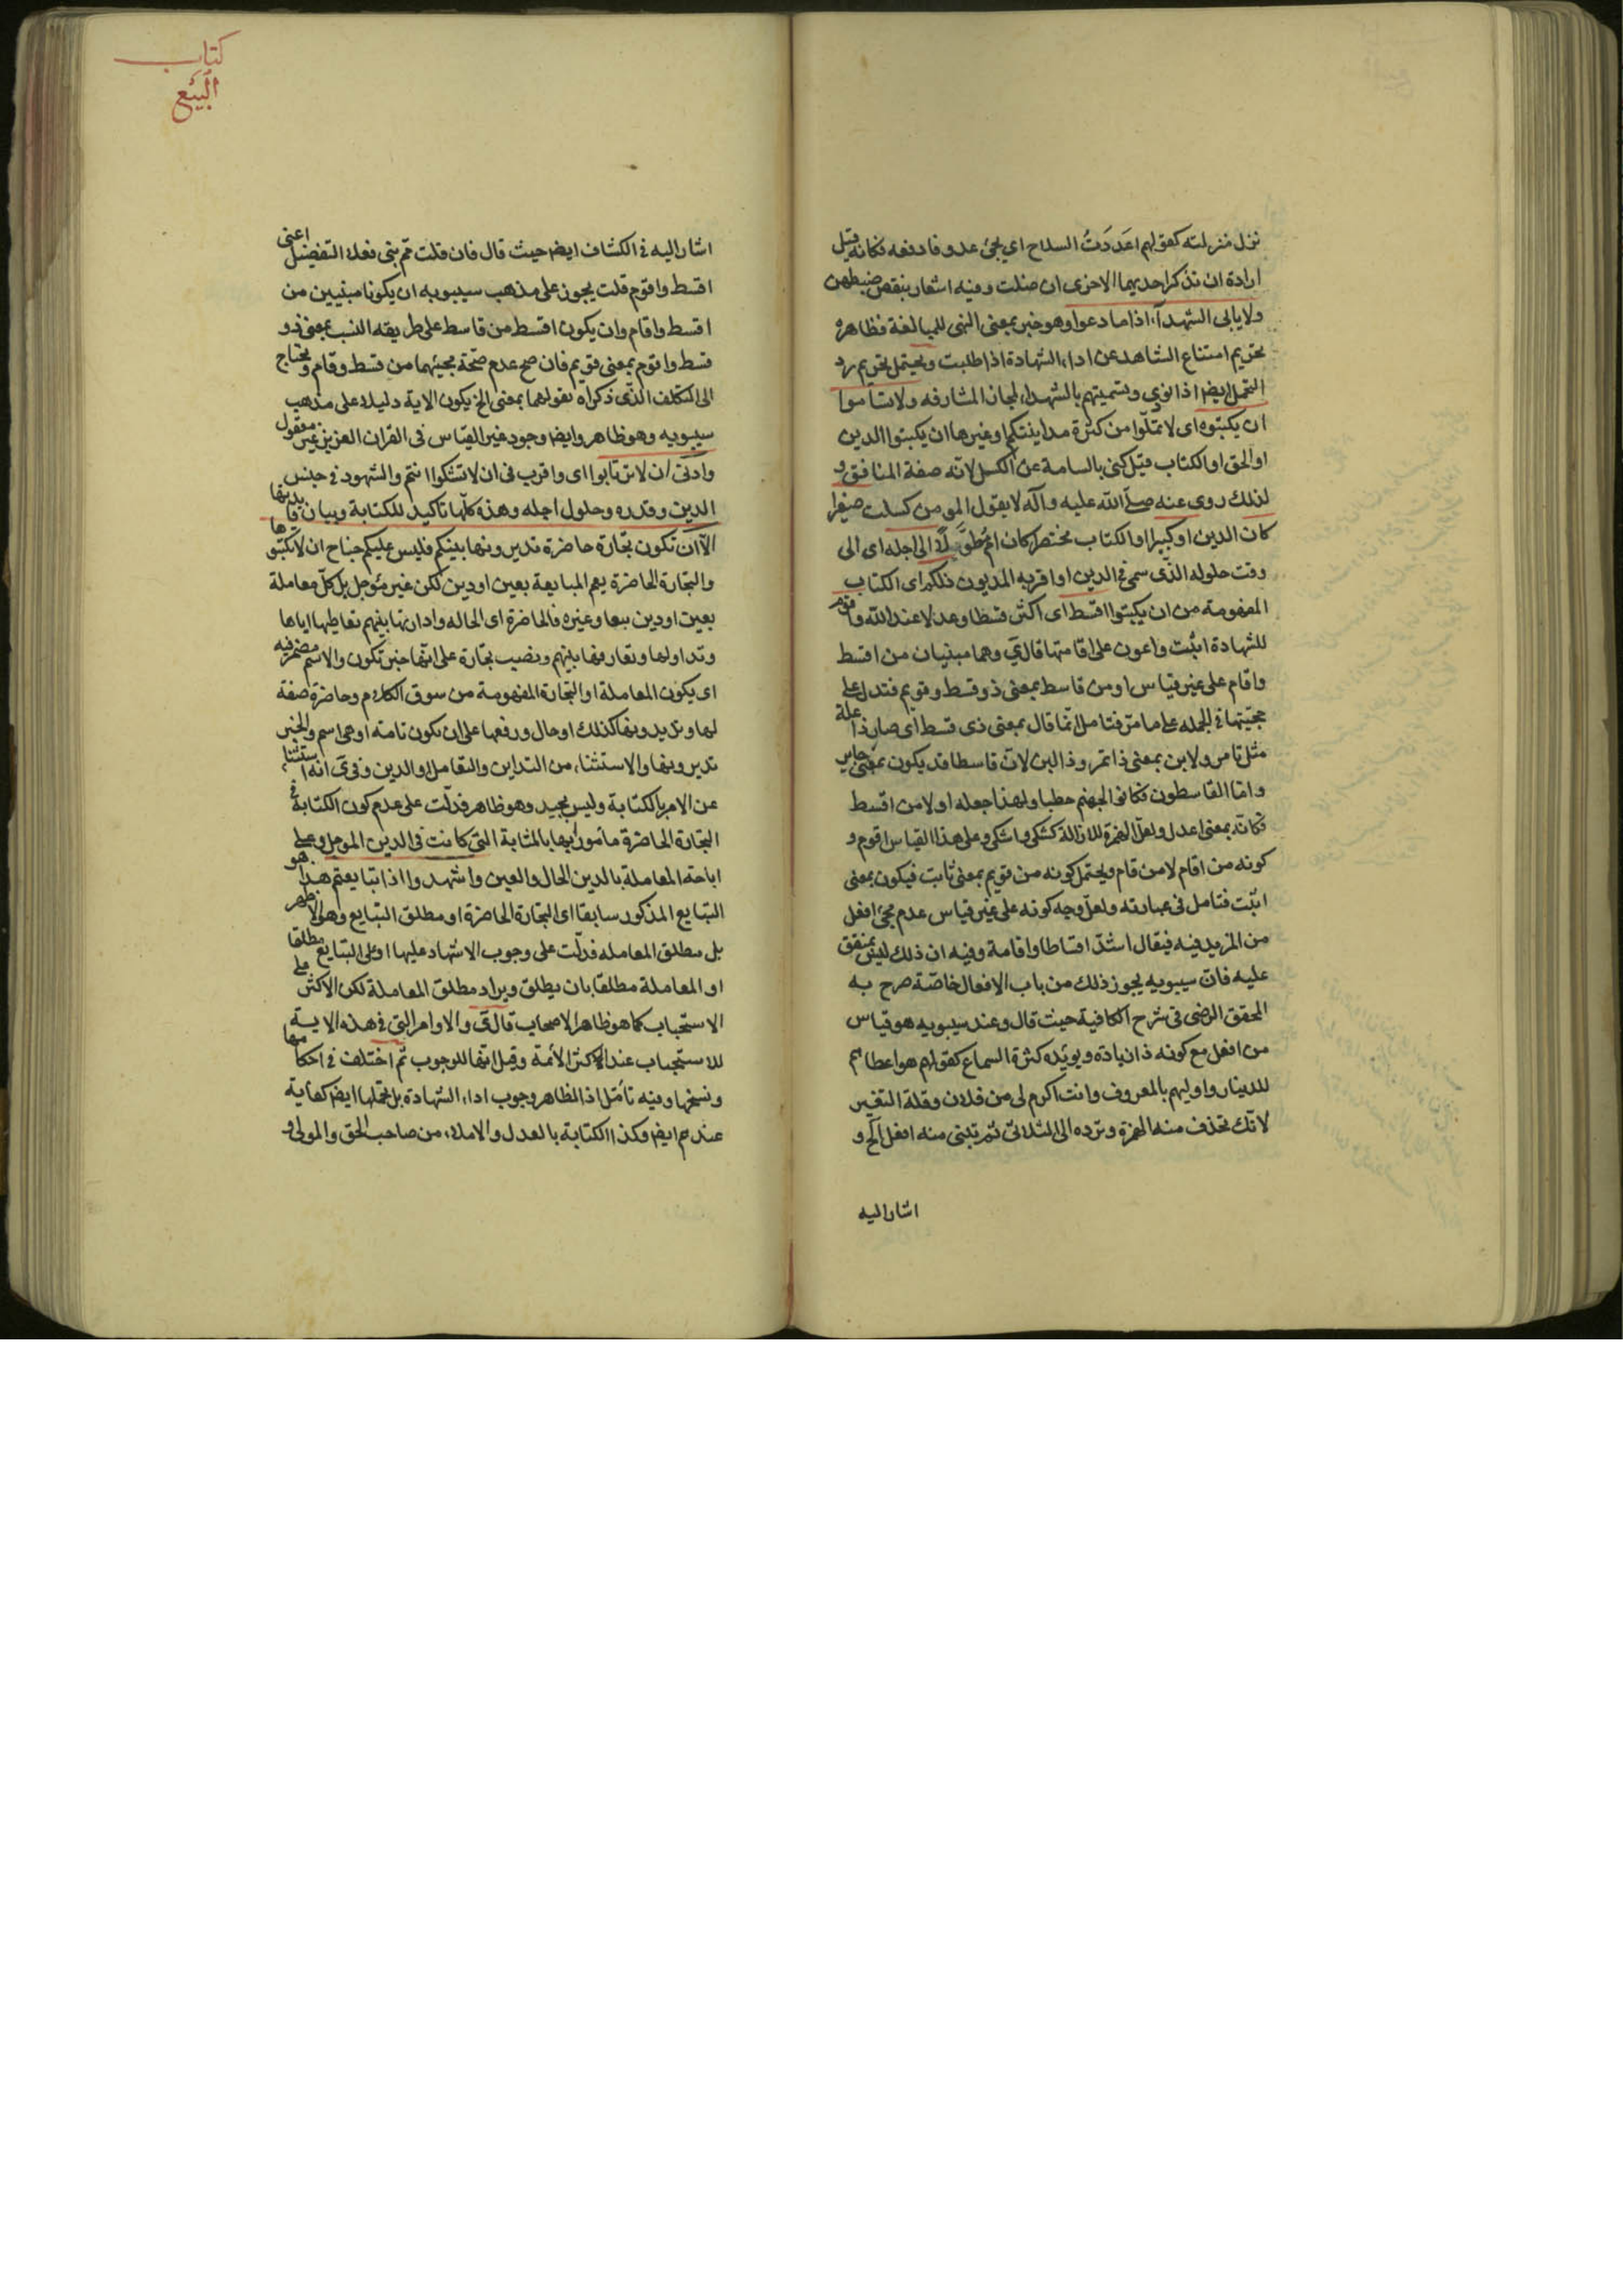 نزل منزلته كقولهم اعددت السلاح اي يجئ عدو فادفعه فكانه قيل
ارادة ان تذكر احديهما الاخرى ان ضلت وفيه اشعار بنقص ضبطهن
ولا يابى الشهدآء اذا ما دعوا وهو خبر بمعنى النهى للمبالغة فظاهره
تحريم امتناع الشاهد عن اداء الشهادة اذا طلبت ويحتمل تحريم رد
التحمل ايضا اذا نودي وتسميتهم بالشهداء لمجاز المشارفه ولا تساموا
ان يكتبوه اى لا تملّوا من كثرة مداينتكم او غيرها ان يكتبوا الدين
او الحق او الكتاب قيل كنى بالسامة عن الكسل لانه صفة المنافق و
لذلك روى عنه صلّے الله عليه وآله لا يقول المومن كسلت صغيرا
كان الدين او كبيرا او الكتاب مختصرا كان ام مُطَوَّلًا الى اجله اى الى
وقت حلوله الذّى سمى فى الدين او اقر به المديون ذلكم اى الكتاب
المفهومة من ان يكتبوا اقسط اى اكثر قسطا وعدلا عند الله واقوم
للشهادة اثبت واعون على اقامتها قال ي وهما مبنيان من اقسط
واقام على غير قياس او من قاسط بمعنى ذو قسط وقويم فتدل على
حجيّتها فى الجمله على ما مرّ فتامل انّما قال بمعنى ذى قسط اى صار ذا علة
مثل تامر ولابن بمعنى ذا تمر وذا لبن لانّ قاسطا قد يكون بمعنى جاير
وامّا القاسطون فكانوا لجهنم حطبا ولهذا جعله او لا من اقسط
فكانّه بمعنى اعدل ولعل الهمزة للازالة كشكى واشكى وعلى هذا القياس اقوم و
كونه من اقام لا من قام ويحتمل كونه من قويم بمعنى ثابت فيكون بمعنى
اثبت فتامل فى عبارته ولعلّ وجه كونه على غير قياس عدم مجئ افعل
من المزيد فيه فيقال اشدّ اقساطا واقامة وفيه ان ذلك ليس بمتفق
عليه فانّ سيبويه يجوز ذلك من باب الافعال خاصّة صرح به
المحقق الرضى فى شرح الكافية حيث قال وعند سيبويه هو قياس
من افعل مع كونه ذا زيادة ويويّده كثرة السماع كقولهم هو اعطاهم
للدينار واوليهم بالمعروف وانت اكرم لى من فلان وقلة التغيير
لانّك تحذف منه الهمزة وتردّه الى الثلاثى ثم تبنى منه افعل الخ و
اشار اليه
كتاب
البَيْع
اشار اليه فى الكشاف ايضا حيث قال فان قلت ممّ بنى فعلا التفضيل اعنى
اقسط واقوم قلت يجوز على مذهب سيبويه ان يكونا مبنيين من
اقسط واقام وان يكون اقسط من قاسط على طريقه النسب بمعنى ذو
قسط واقوم بمعنى قويم فان صح عدم صحّة مجيئهما من قسط وقام ويحتاج
الى التكلف الذّى ذكراه بقولهما بمعنى الخ يكون الاية دليلا على مذهب
سيبويه وهو ظاهر وايضا وجود غير القياس فى القران العزيز غير معقول
وادنى ان لا ترتابوا اى واقرب فى ان لا تشكوا انتم والشهود فى جنس
الدين وقدره وحلول اجله وهذه كلّها تاكيد للكتابة وبيان فايدتها
الّا ان تكون تجارة حاضرة تديرونها بينكم فليس عليكم جناح ان لا تكتبوها
والتجارة الحاضرة يعم المبايعة بعين او دين لكن غير مؤجل بل كلّ معاملة
بعين او دين بيعا وغيره فالحاضرة اى الحاله وادارتها بينهم تعاطيها اياها
وتداولها وتعارفها بينهم ونصب تجارة على انّها خبر تكون والاسم مضمر فيه
اى يكون المعاملة او التجارة المفهومة من سوق الكلام وحاضرة صفة
لها وتديرونها كذلك او حال ورفعها على ان تكون تامة او هى اسم والخبر
تديرونها والاستثناء من التداين والتعامل او الدين وفى ي انه استثناء
عن الامر بالكتابة وليس بجيد وهو ظاهر فدلّت على عدم كون الكتابة فى
التجارة الحاضرة مامورا بها بالمثابة التى كانت فى الدين الموجل وعلى
اباحة المعاملة بالدين الحال والعين واشهدوا اذا تبايعتم هذا هو
التبايع المذكور سابقا اى التجارة الحاضرة او مطلق التبايع وهو الاظهر
بل مطلق المعامله فدلّت على وجوب الاشهاد عليها او على التبايع مطلقا
او المعاملة مطلقا بان يطلق ويراد مطلق المعاملة لكن الاكثر على
الاستحباب كما هو ظاهر الاصحاب قال ق والاوامر التى فى هذه الاية
للاستحباب عند الاكثر الائمة وقيل انّها للوجوب ثم اختلف فى احكامها
ونسخها وفيه تأمّل اذ الظاهر وجوب اداء الشهادة بل تحمّلها ايضا كفاية
عندهم ايضا وكذا الكتابة بالعدل والاملاء من صاحب الحق والمولى و